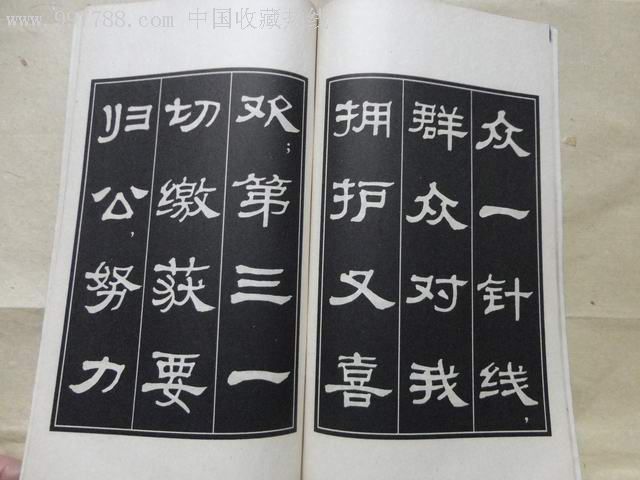 www.997788.com 中国收藏热线
众一针线，
群众对我
拥护又喜
欢；第三一
切缴获要
归公，努力